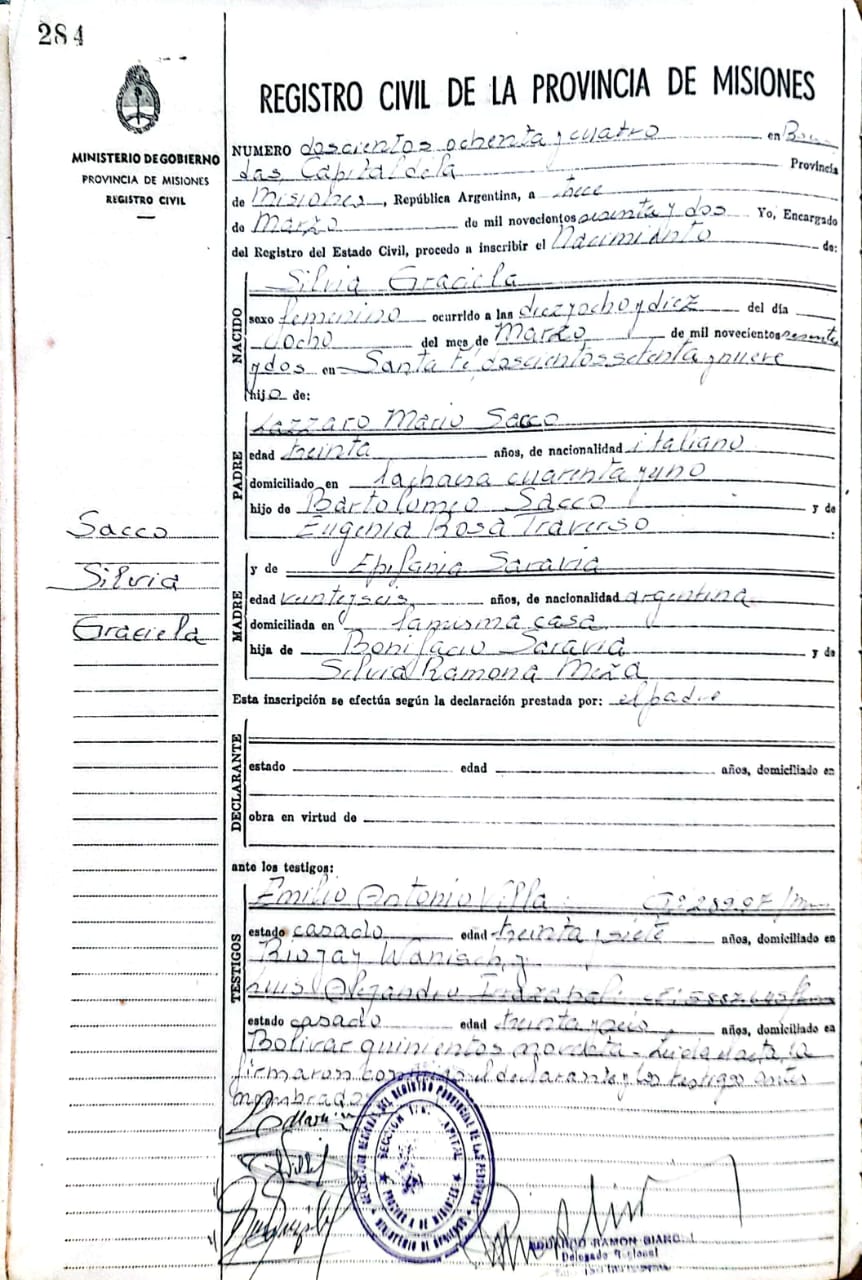 284
MINISTERIO DE GOBIERNO
PROVINCIA DE MISIONES
REGISTRO CIVIL
REGISTRO CIVIL DE LA PROVINCIA DE MISIONES
NUMERO doscientos ochenta y cuatro en
das, Capital de la Provincia
de Misiones, República Argentina, a trece
de Marzo de mil novecientos sesenta y dos Yo, Encargado
del Registro del Estado Civil, procedo a inscribir el Nacimiento de:
NACIDO
Silvia Graciela
sexo femenino ocurrido a las diez y ocho y diez del día
ocho del mes de Marzo de mil novecientos sesenta
y dos en Santa Fé, doscientos setenta y nueve
hija de:
PADRE
Lazzaro Mario Sacco
edad treinta años, de nacionalidad italiano
domiciliado en la chacra cuarenta y uno
hijo de Bartolomeo Sacco y de
Eugenia Rosa Traverso
Sacco
Silvia
Graciela
MADRE
y de Epifania Saravia
edad veintyseis años, de nacionalidad argentina
domiciliada en la misma casa
hija de Bonifacio Saravia y de
Silvia Ramona Meza
Esta inscripción se efectúa según la declaración prestada por: el padre
DECLARANTE
estado edad años, domiciliado en
obra en virtud de
ante los testigos:
TESTIGOS
Emilio Antonio Villa
estado casado edad treinta y siete años, domiciliado en
Rioja y
Luis Alejandro
estado casado edad treinta y años, domiciliado en
Bolivar quinientos noventa. Leida el acta, la
firmaron conmigo el declarante y los testigos antes
nombrados
EDUARDO RAMON
Delegado